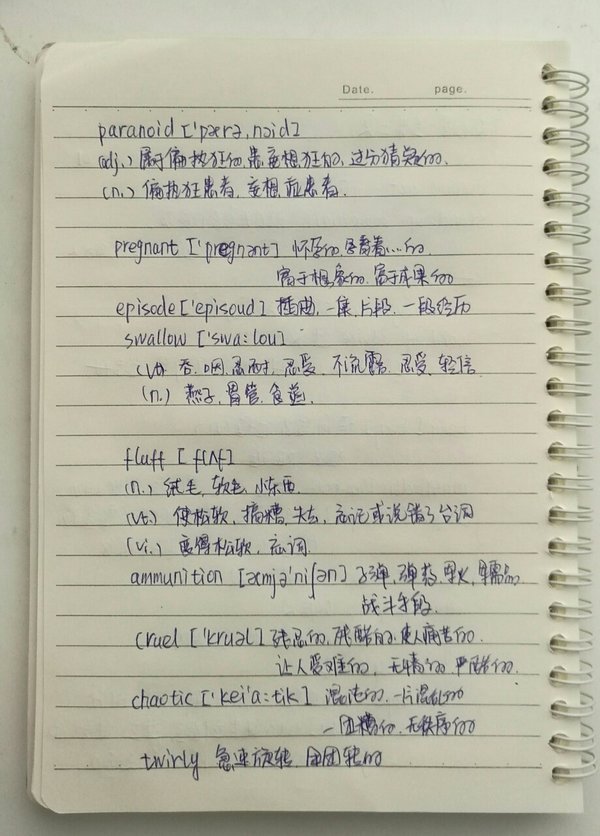 Date. page.
paranoid ['pærə,nɔid]
(adj.) 属于偏执狂的,患妄想狂的,过分猜疑的.
(n.) 偏执狂患者,妄想症患者.
pregnant ['pregnənt] 怀孕的,孕育着…的
富于想象的,富于成果的
episode ['episoud] 插曲,一集,片段,一段经历
swallow ['swa:lou]
(vt) 吞.咽.忍耐,忍受,不流露,忍受,轻信
(n.) 燕子,胃管,食道.
fluff [flʌf]
(n.) 绒毛,软毛,小东西
(vt.) 使松软,搞糟,失去,忘记或说错了台词
(vi.) 变得松软,忘词.
ammunition [æmjə'niʃən] 子弹,弹药,军火,军需品
战斗手段.
cruel ['kruəl] 残忍的,残酷的,使人痛苦的.
让人受难的,无情的,严酷的.
chaotic ['kei'a:tik] 混沌的,一片混乱的
一团糟的,无秩序的
twirly 急速旋转,团团转的